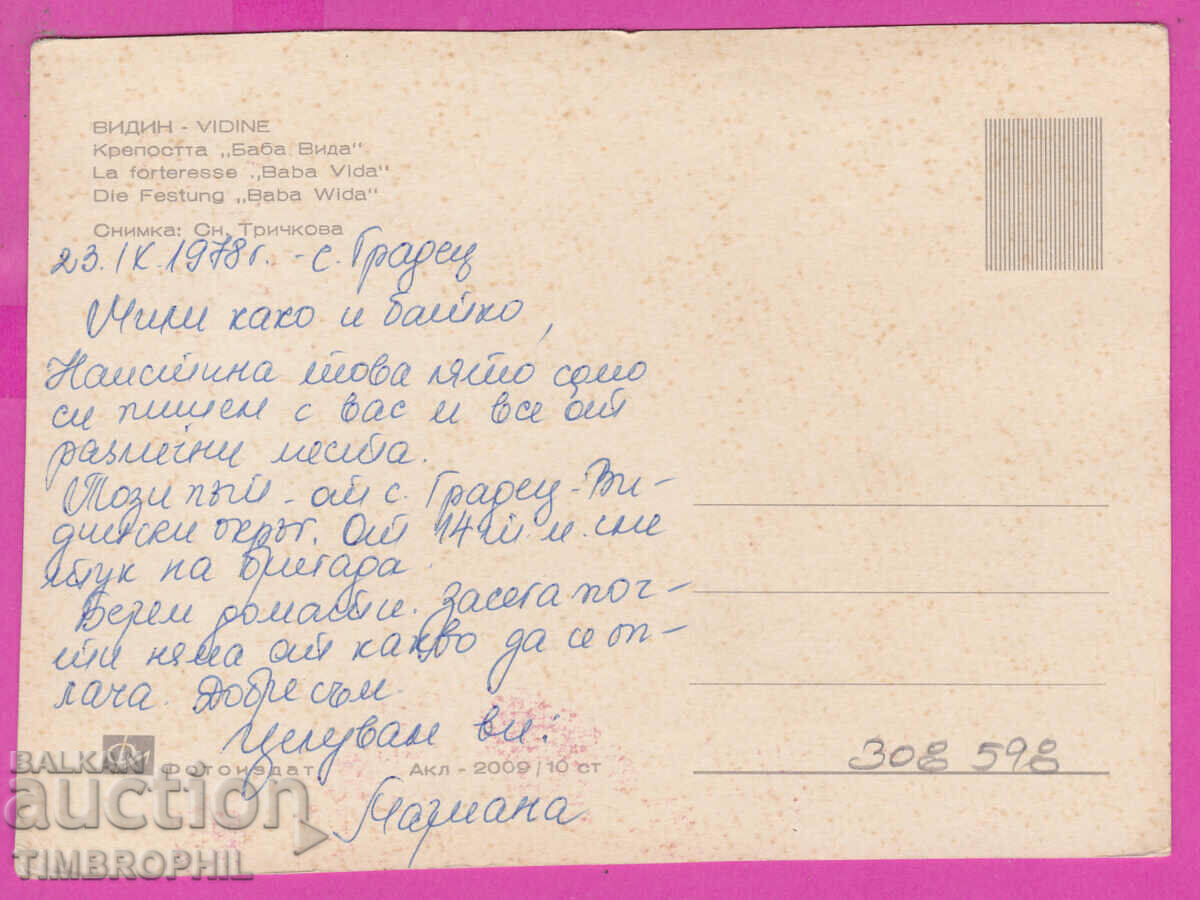 ВИДИН - VIDINE
Крепостта „Баба Вида"
La forteresse „Baba Vida"
Die Festung „Baba Wida"
Снимка: Сн. Тричкова
23.IX.1978г. - с. Градец
Мили како и батко,
Наистина това лято само
си пишем с вас и все от
различни места.
Този път - от с. Градец - Ви-
дински окръг. От 14 т.м. сме
тук на бригада.
Берем домати. Засега поч-
ти няма от какво да се оп-
лача. Добре съм.
Целувам ви:
Мариана
Фотоиздат
Акл - 2009/10 ст
308 598
BALKAN
auction
TIMBROPHIL